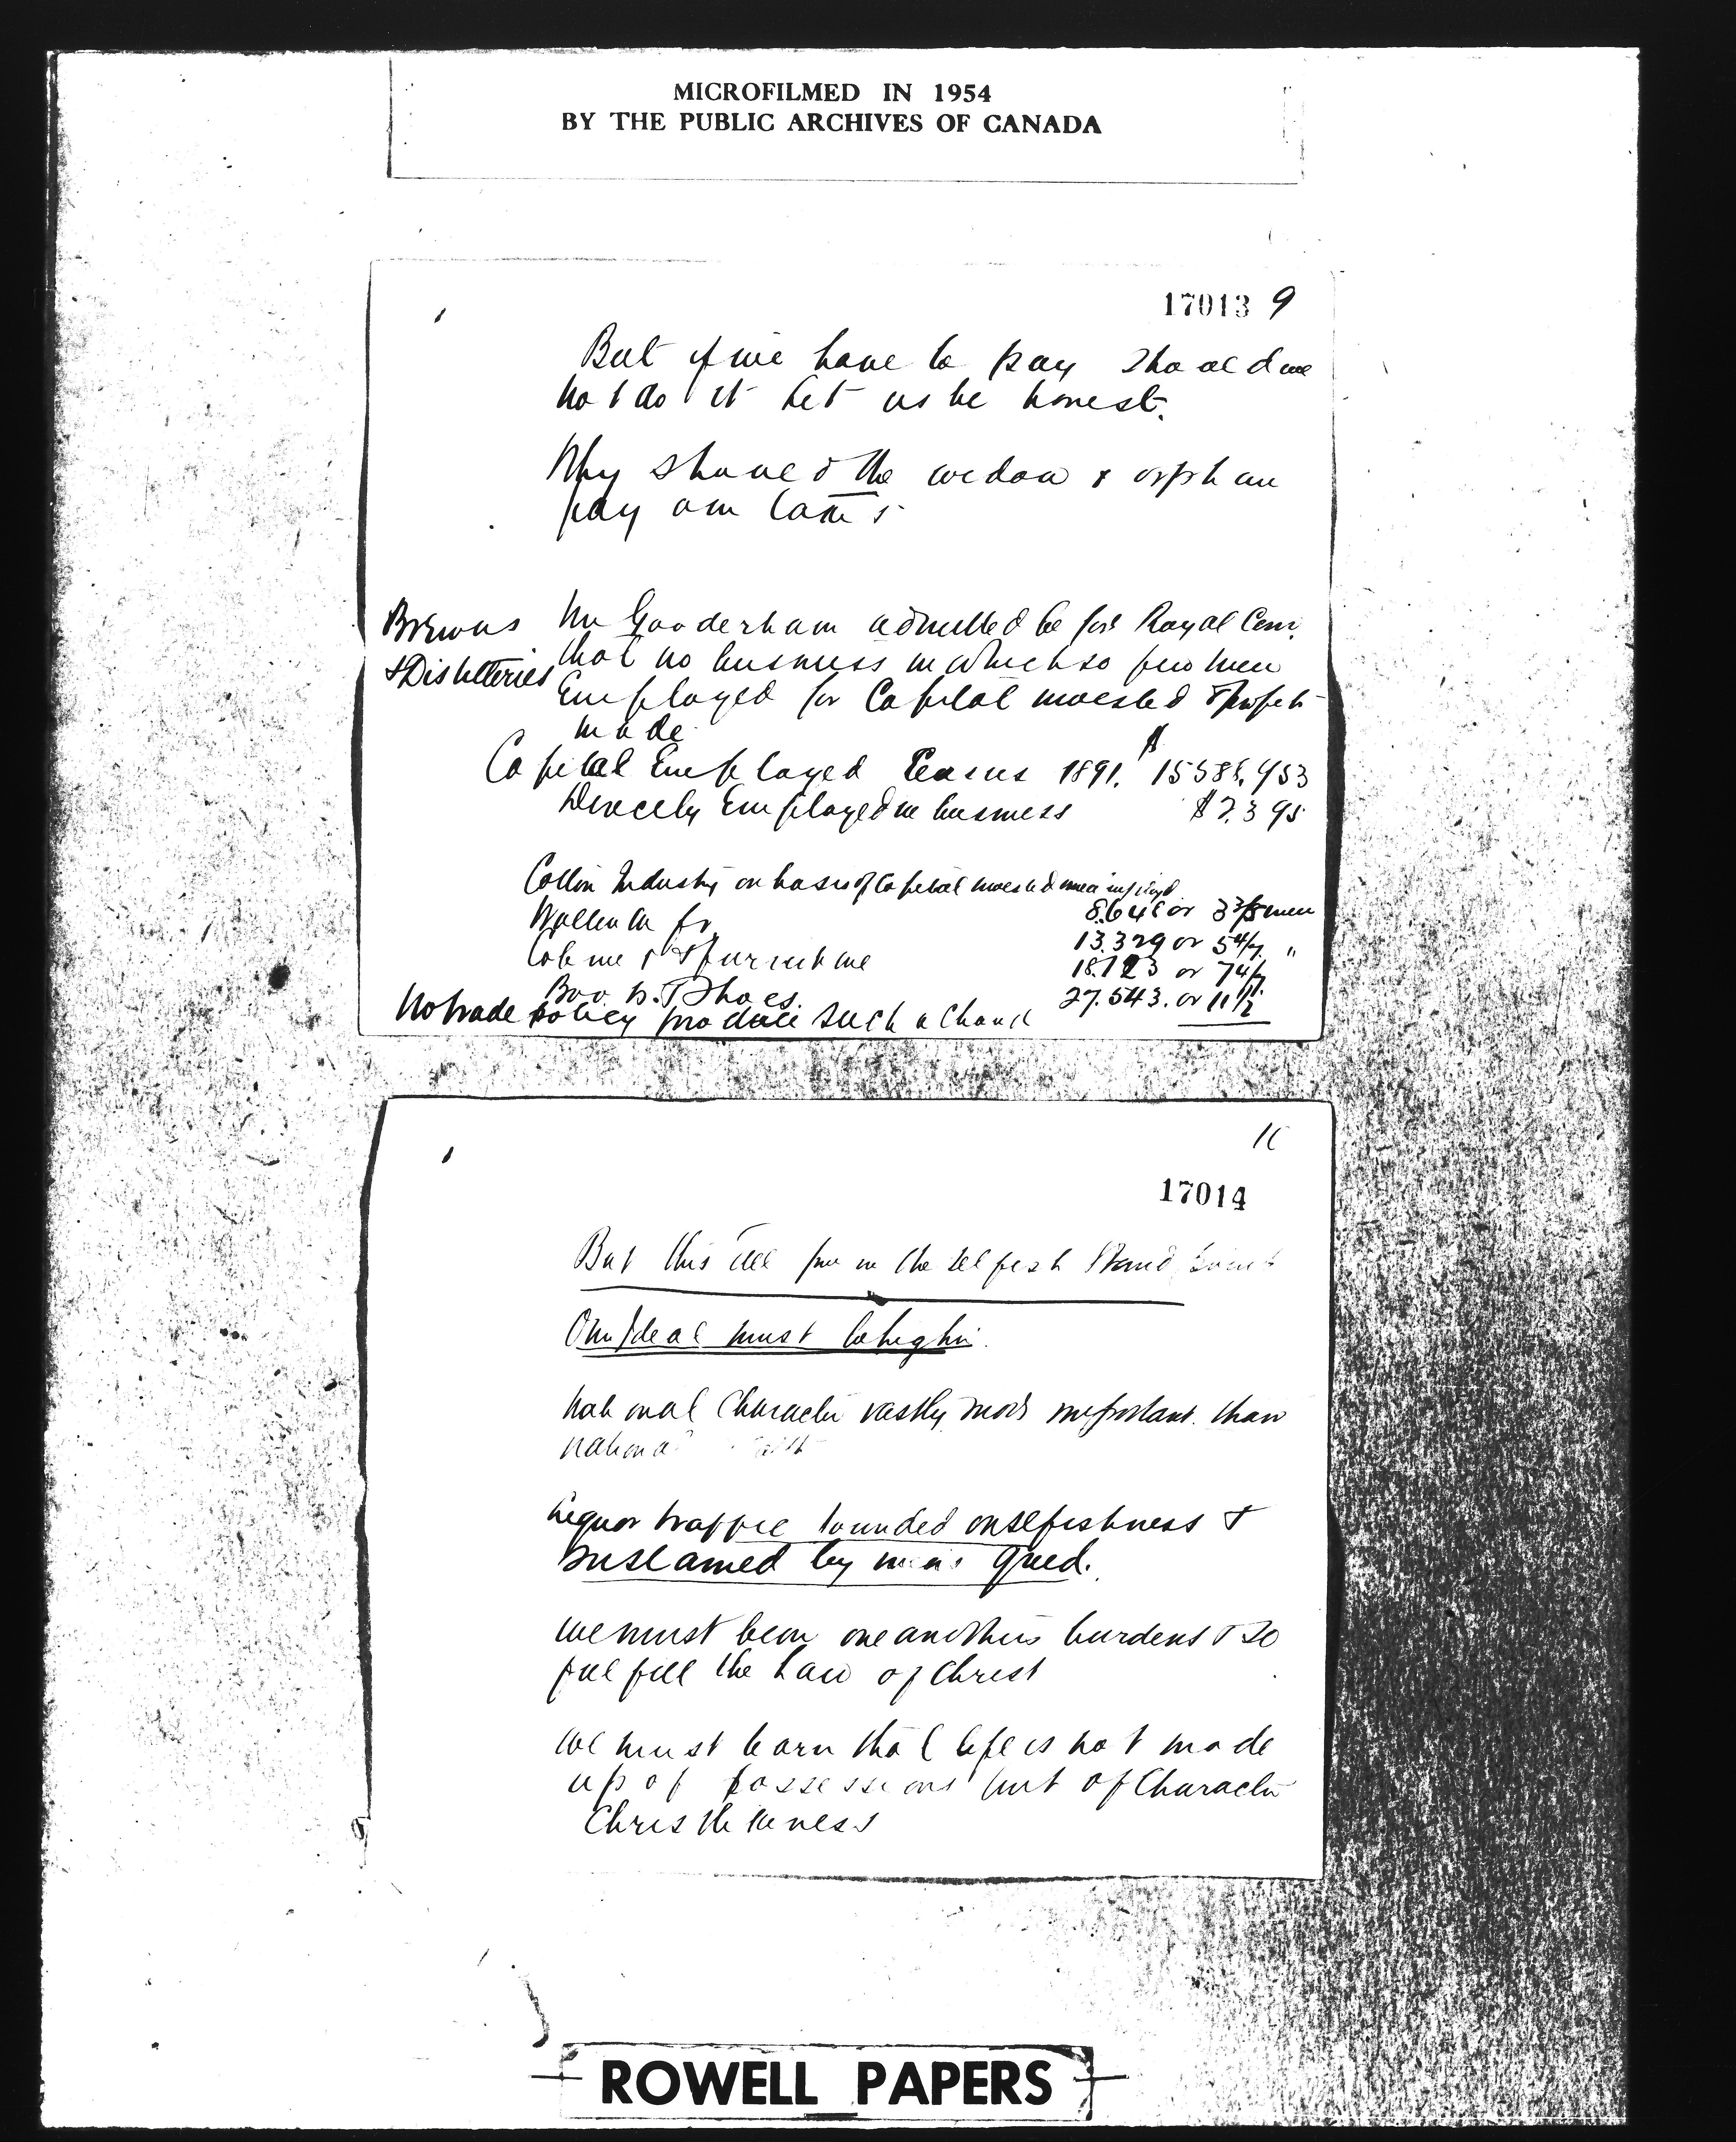 MICROFILMED IN 1954
BY THE PUBLIC ARCHIVES OF CANADA
17013 9
But if we have to pay should we
not do it let us be honest.
Why should the widow & orphan
pay our taxes
Brewers
& Distilleries
Mr Gooderham admitted before Royal Com.
that no business in which so few men
Employed for Capital invested & profit
made
Capital Employed Census 1891. $ 15588,453
Directly Employed in business $ 2.395
Cotton Industry on basis of Capital invested men employd
8.648 or 3 3/5 men
Woollen
13.329 or 5 4/7 "
Cabinet & furniture
18.123 or 7 4/7
Boots & Shoes.
27.543. or 11 1/2
No trade policy produce such a
17014
But this all from the selfish Stand point
Our Ideal must be higher.
National Character vastly more important than
national
Liquor traffic founded on selfishness &
sustained by mens greed.
We must bear one anothers burdens & so
fulfill the Law of Christ
We must learn that life is not made
up of possessions but of Character
Christlikeness
ROWELL PAPERS